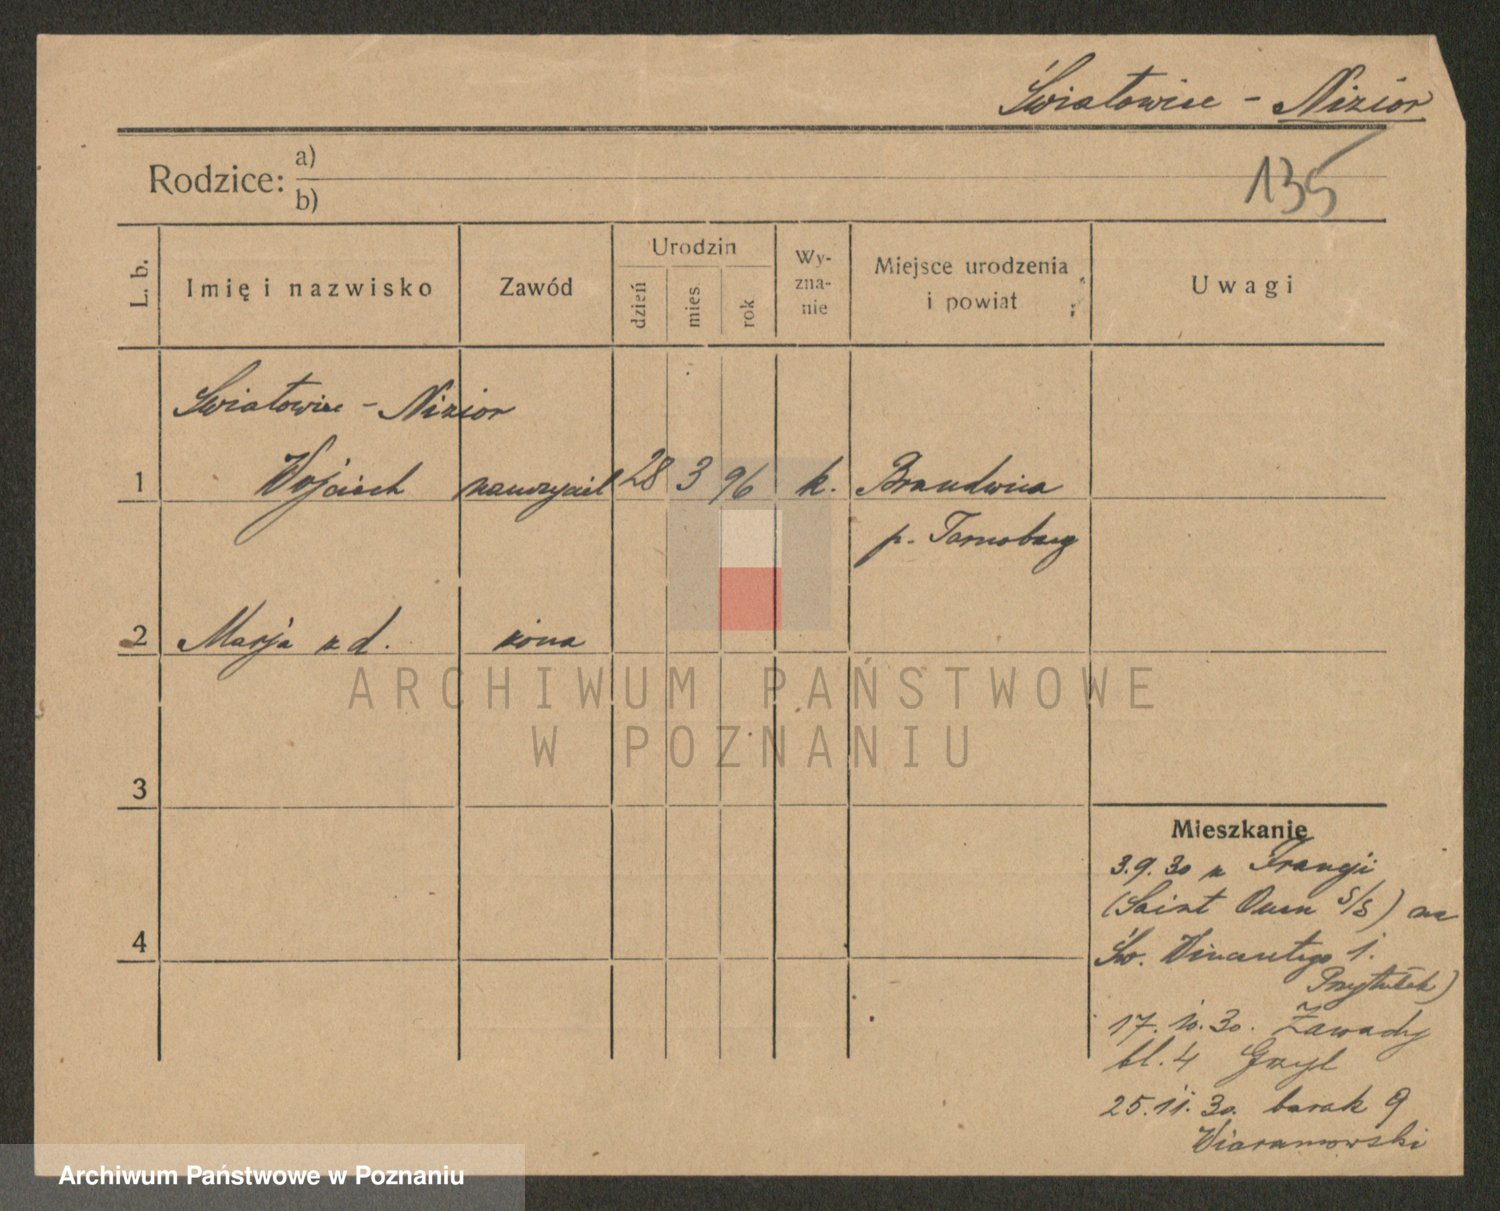 Światowiec - Nizior
135
Rodzice: a)
b)
L. b.
Imię i nazwisko
Zawód
Urodzin
dzień
mies.
rok
Wy-
zna-
nie
Miejsce urodzenia
i powiat
Uwagi
Światowiec - Nizior
1 Wojciech nauczyciel 28 3 96 k. Brandwica
p. Tarnobrzeg
2 Marja z d. żona
3
4
Mieszkanie
3.9.30 z Francji
(Saint Ouen S/S)
Św. Wincentego 1.
Przytułek)
17.10.30. Zawady
bl. 4
25.11.30. barak 9
ARCHIWUM PAŃSTWOWE
W POZNANIU
Archiwum Państwowe w Poznaniu